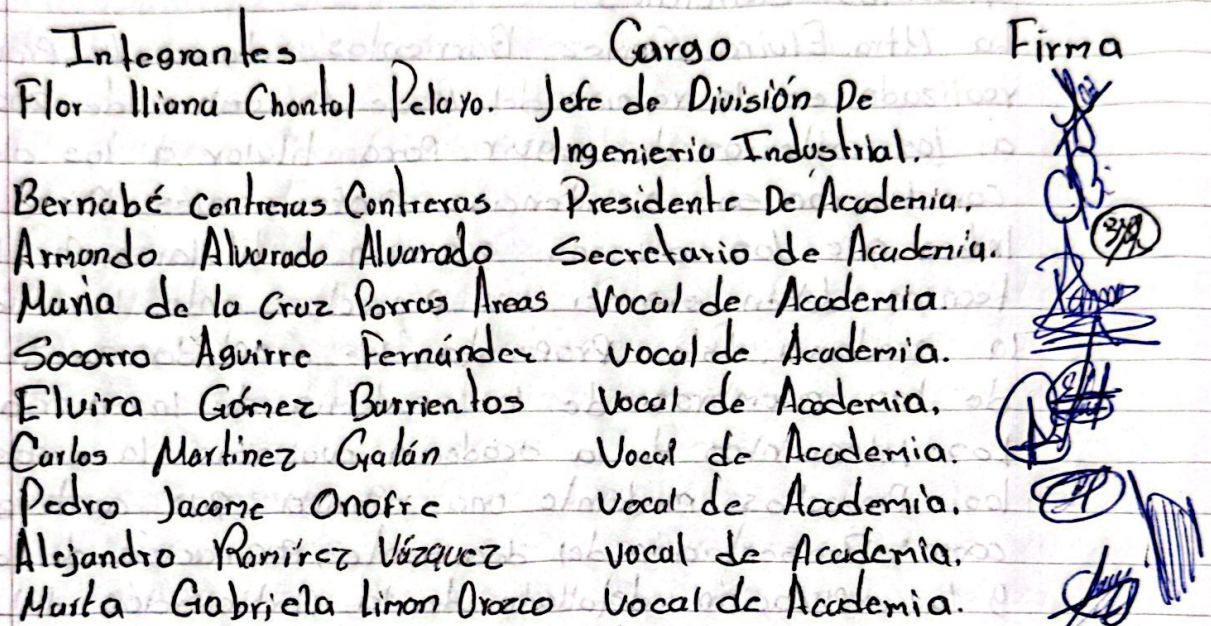 Integrantes Cargo Firma
Flor Iliana Chontal Pelayo. Jefe de División De
Ingenieria Industrial.
Bernabé Contreras Contreras Presidente De Academia.
Armando Alvarado Alvarado Secretario de Academia.
Maria de la Cruz Porras Areas Vocal de Academia.
Socorro Aguirre Fernández vocal de Academia.
Elvira Gómez Barrientos Vocal de Academia.
Carlos Martinez Galán Vocal de Academia.
Pedro Jacome Onofre Vocal de Academia.
Alejandro Ramirez Vázquez vocal de Academia.
Marta Gabriela Limon Orozco Vocal de Academia.